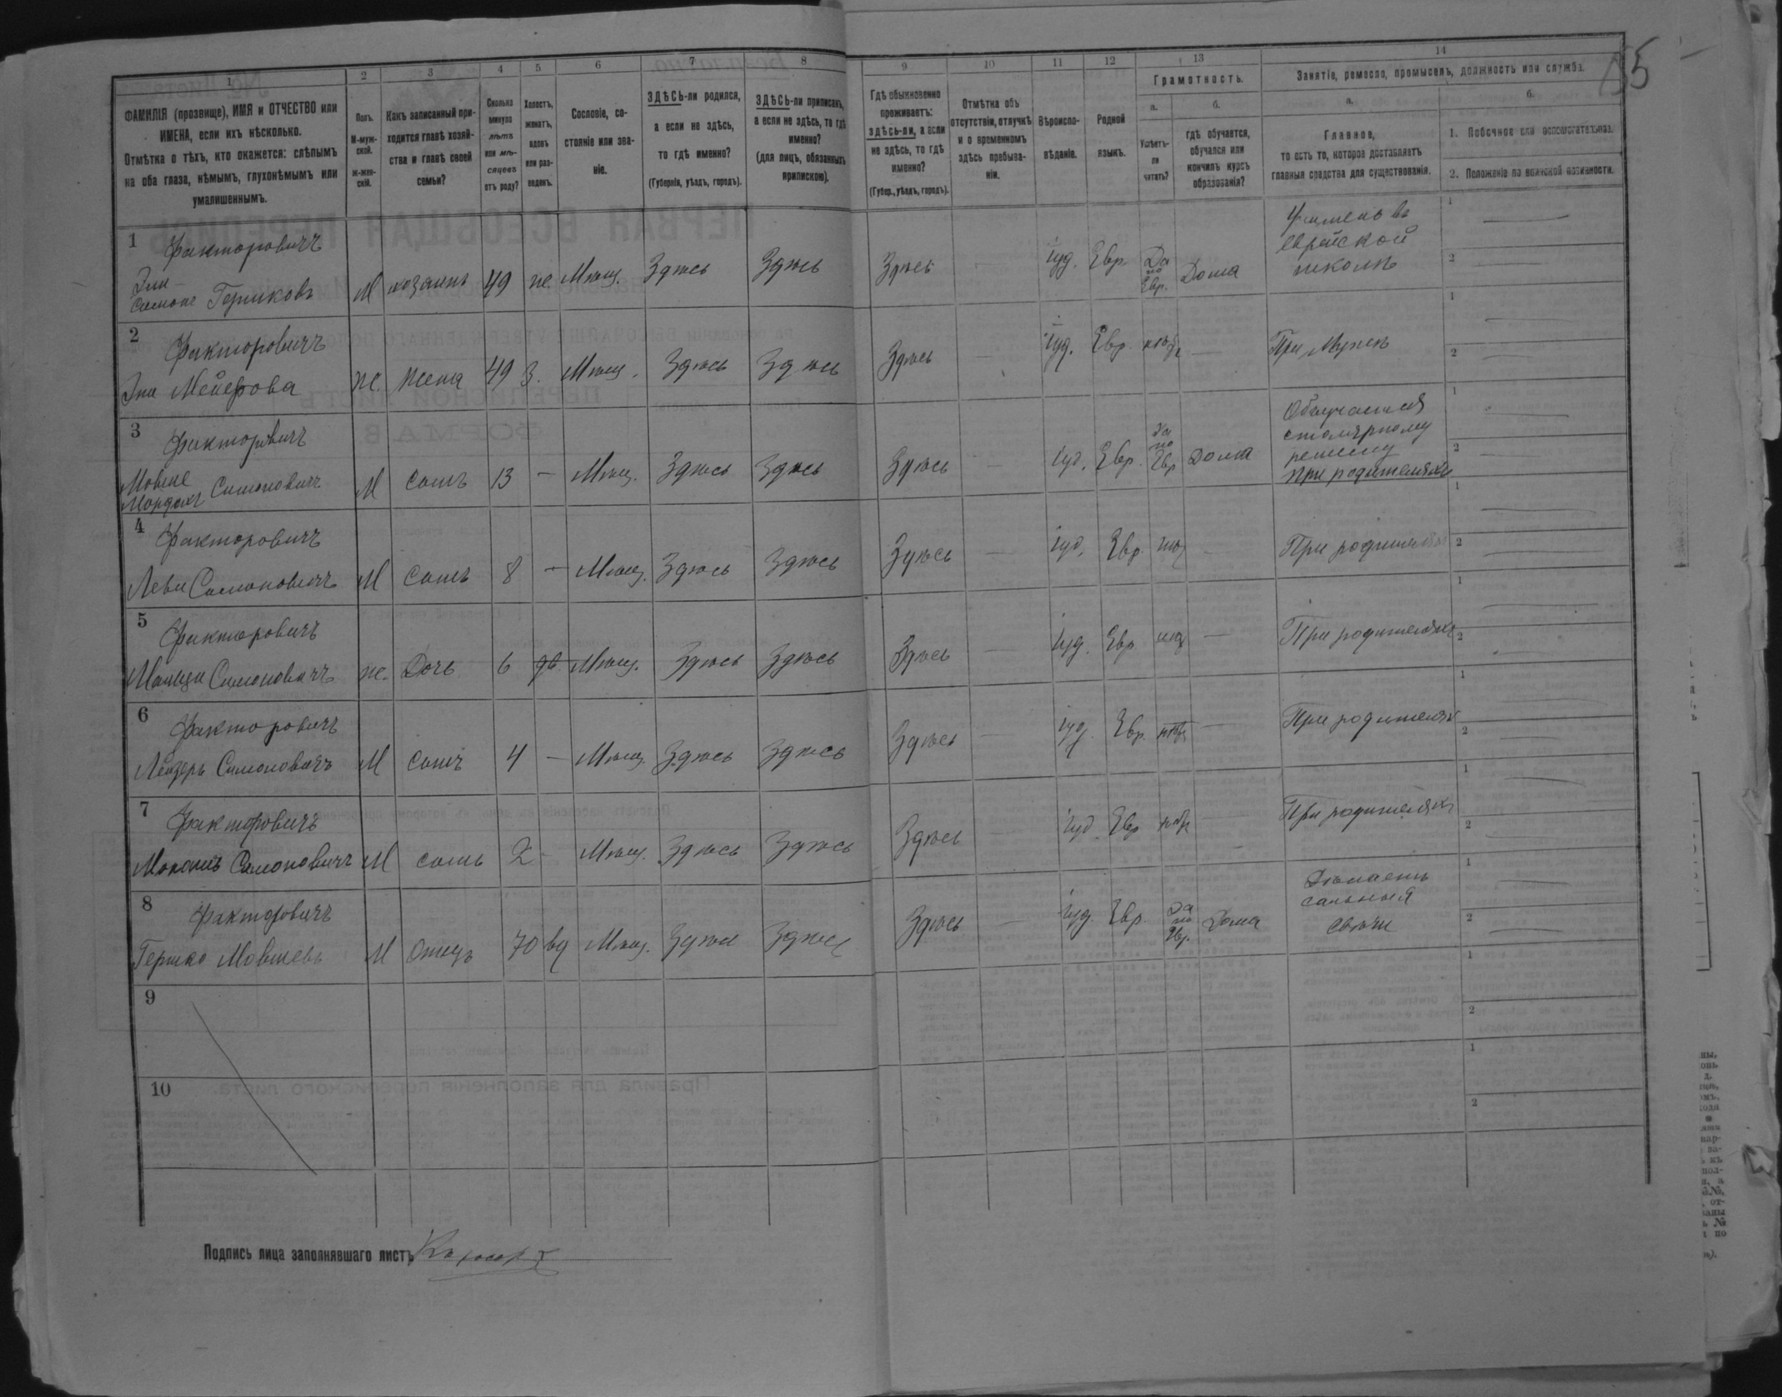 15
1
2
3
4
5
6
7
8
9
10
11
12
13
14
ФАМИЛІЯ (прозвище), ИМЯ и ОТЧЕСТВО или
ИМЕНА, если ихъ нѣсколько.
Отмѣтка о тѣхъ, кто окажется: слѣпымъ
на оба глаза, нѣмымъ, глухонѣмымъ или
умалишеннымъ.
Полъ.
М-муж-
ской.
Ж-жен-
скій.
Какъ записанный при-
ходится главѣ хозяй-
ства и главѣ своей
семьи?
Сколько
минуло
лѣтъ
или мѣ-
сяцевъ
отъ роду?
Холостъ,
женатъ,
вдовъ
или раз-
веденъ.
Сословіе, со-
стояніе или зва-
ніе.
ЗДѢСЬ-ли родился,
а если не здѣсь,
то гдѣ именно?
(Губернія, уѣздъ, городъ).
ЗДѢСЬ-ли приписанъ,
а если не здѣсь, то гдѣ
именно?
(для лицъ, обязанныхъ
припискою).
Гдѣ обыкновенно
проживаетъ:
здѣсь-ли, а если
не здѣсь, то гдѣ
именно?
(Губер., уѣздъ, городъ).
Отмѣтка объ
отсутствіи, отлучкѣ
и о временномъ
здѣсь пребыва-
ніи.
Вѣроиспо-
вѣданіе.
Родной
языкъ.
Грамотность.
а.
Умѣетъ-
ли
читать?
б.
гдѣ обучается,
обучался или
кончилъ курсъ
образованія?
Занятіе, ремесло, промыселъ, должность или служба.
а.
Главное,
то есть то, которое доставляетъ
главныя средства для существованія.
б.
1. Побочное или вспомогательное.
2. Положеніе по воинской повинности.
1 Факторовичъ
Симонъ Гершковъ М хозяинъ 49 же Мѣщ. Здѣсь Здѣсь Здѣсь — Іуд. Евр. Да по Евр. Дома
еврейской
школѣ
2 Факторовичъ
Мейерова ж. жена 49 з. Мѣщ. Здѣсь Здѣсь Здѣсь — Іуд. Евр. — При мужѣ
3 Факторовичъ
Мовше
Мордхе Симоновичъ М сынъ 13 — Мѣщ. Здѣсь Здѣсь Здѣсь — Іуд. Евр. Да по Евр Дома
Обучается
столярному
при родителяхъ
4 Факторовичъ
Леви Симоновичъ М сынъ 8 — Мѣщ. Здѣсь Здѣсь Здѣсь — Іуд. Евр. — При родителяхъ
5 Факторовичъ
Симоновичъ ж. Дочь 6 Мѣщ. Здѣсь Здѣсь Здѣсь — Іуд. Евр — При родителяхъ
6 Факторовичъ
Лейзеръ Симоновичъ М сынъ 4 — Мѣщ. Здѣсь Здѣсь Здѣсь — Іуд. Евр. — При родителяхъ
7 Факторовичъ
Симоновичъ М сынъ 2 — Мѣщ. Здѣсь Здѣсь Здѣсь — Іуд. Евр — При родителяхъ
8 Факторовичъ
Гершко Мовшевъ М Отецъ 70 вд Мѣщ. Здѣсь Здѣсь Здѣсь — Іуд. Евр. Да по Евр. Дома
Дѣлаетъ
сальныя
свѣчи
9
10
Подпись лица заполнявшаго листъ